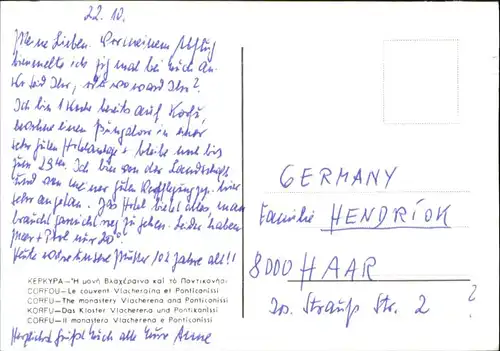 22.10.
Meine Lieben. Vor meinem Abflug
bimmelte ich zig mal bei Euch an.
Wo seid Ihr, wo ward Ihr?
Ich bin 1 Woche bereits auf Korfu,
wohne einen Bungalow in einer
sehr guten Hotelanlage + bleibe noch bis
zum 29ten. Ich bin von der Landschaft
und von meiner guten Verpflegung hier
sehr angetan. Das Hotel bietet alles, man
braucht garnicht weg zu gehen. Leider haben
Meer + Pool nur 20°.
Heute wäre unsere Mutter 102 Jahre alt!!
ΚΕΡΚΥΡΑ—Ἡ μονή Βλαχέραινα καί τό Ποντικονήσι
CORFOU—Le couvent Vlacheraina et Ponticonissi
CORFU—The monastery Vlacherena and Ponticonissi
KORFU—Das Kloster Vlacherena und Pontikonissi
CORFU—Il monastero Vlacherena e Ponticonissi
Herzlichst grüßt Euch alle Eure Anne
GERMANY
Familie HENDRIOK
8000 HAAR
Jos. Strauss Str. 2 ?